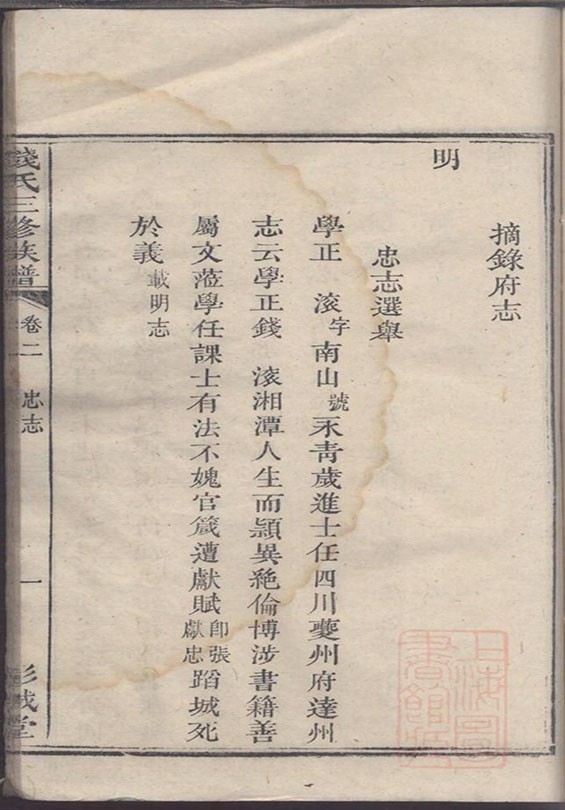 摘錄府志
明
忠志選舉
學正　滚字南山號永青歲進士任四川夔州府達州
志云學正錢　滚湘潭人生而頴異絶倫博涉書籍善
屬文蒞學任課士有法不媿官箴遭獻賦卽張獻忠蹈城死
於義載明志
錢氏三修族譜
卷二
忠志
一
彭城堂
上海圖書館藏